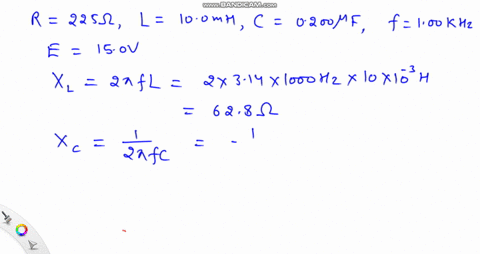 WWW.BANDICAM.COM
R = 225Ω, L = 10.0mH, C = 0.200μF, f = 1.00KHz
E = 15.0V
X_L = 2πfL = 2×3.14×1000Hz×10×10⁻³H
= 62.8Ω
X_C = 1/2πfC = - 1